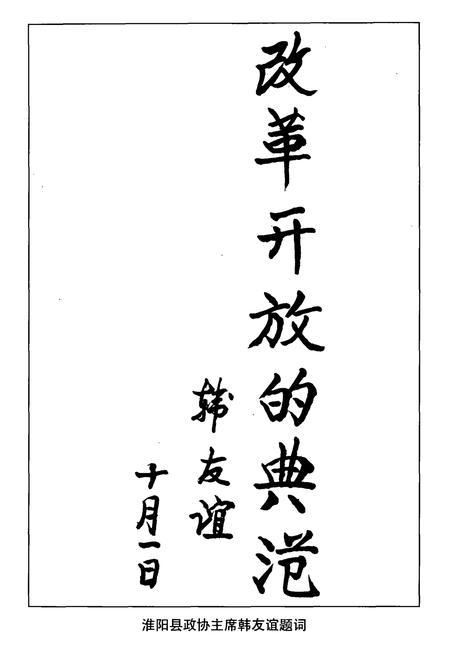 改革开放的典范
韩友谊
十月一日
淮阳县政协主席韩友谊题词